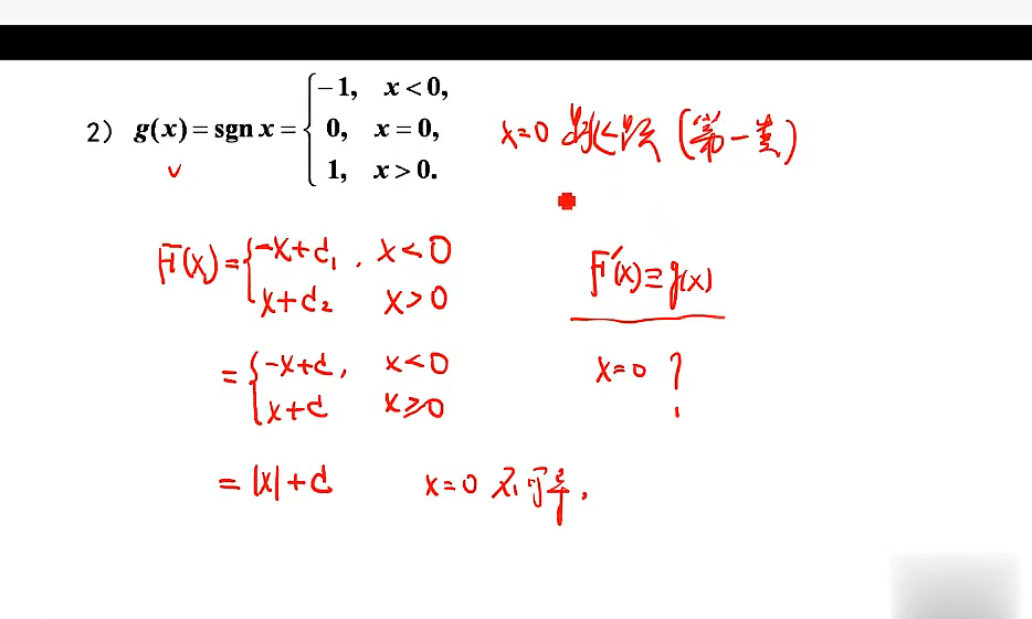 2) g(x) = sgn x = { -1, x < 0,
0, x = 0,
1, x > 0.
x=0 跳跃 (第一类)
F(x) = { -x+c₁, x<0
x+c₂ x>0
F'(x) ≡ g(x)
= { -x+c, x<0
x+c x≥0
x=0 ?
= |x|+c x=0 不可导,